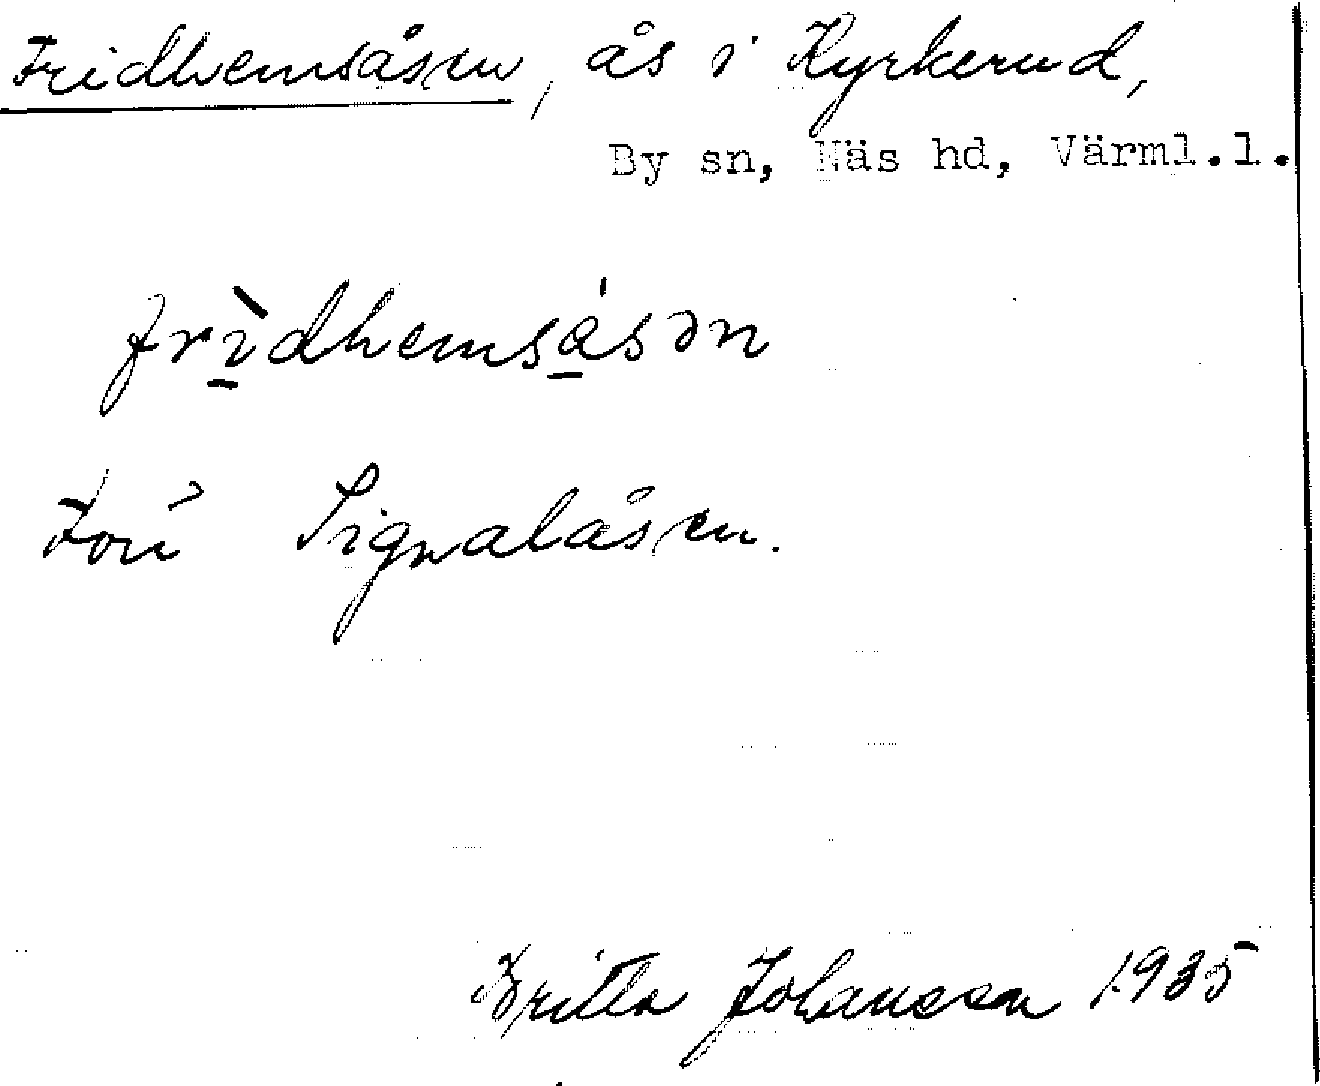 Fridhemsåsen, ås i Kyrkerud,
By sn, Näs hd, Värml.l.
frìdhemsåsən
Signalåsen.
Britta Johansson 1935